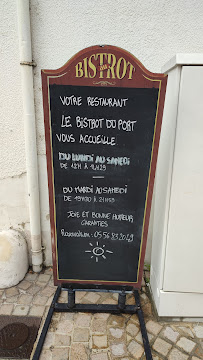 BISTROT
VOTRE RESTAURANT
LE BISTROT DU PORT
VOUS ACCUEILLE
DU LUNDI AU SAMEDI
DE 12H À 14H29
DU MARDI AU SAMEDI
DE 19H30 À 21H59
JOIE ET BONNE HUMEUR
GARANTIES
RÉSERVATION : 05 56 83 20 29